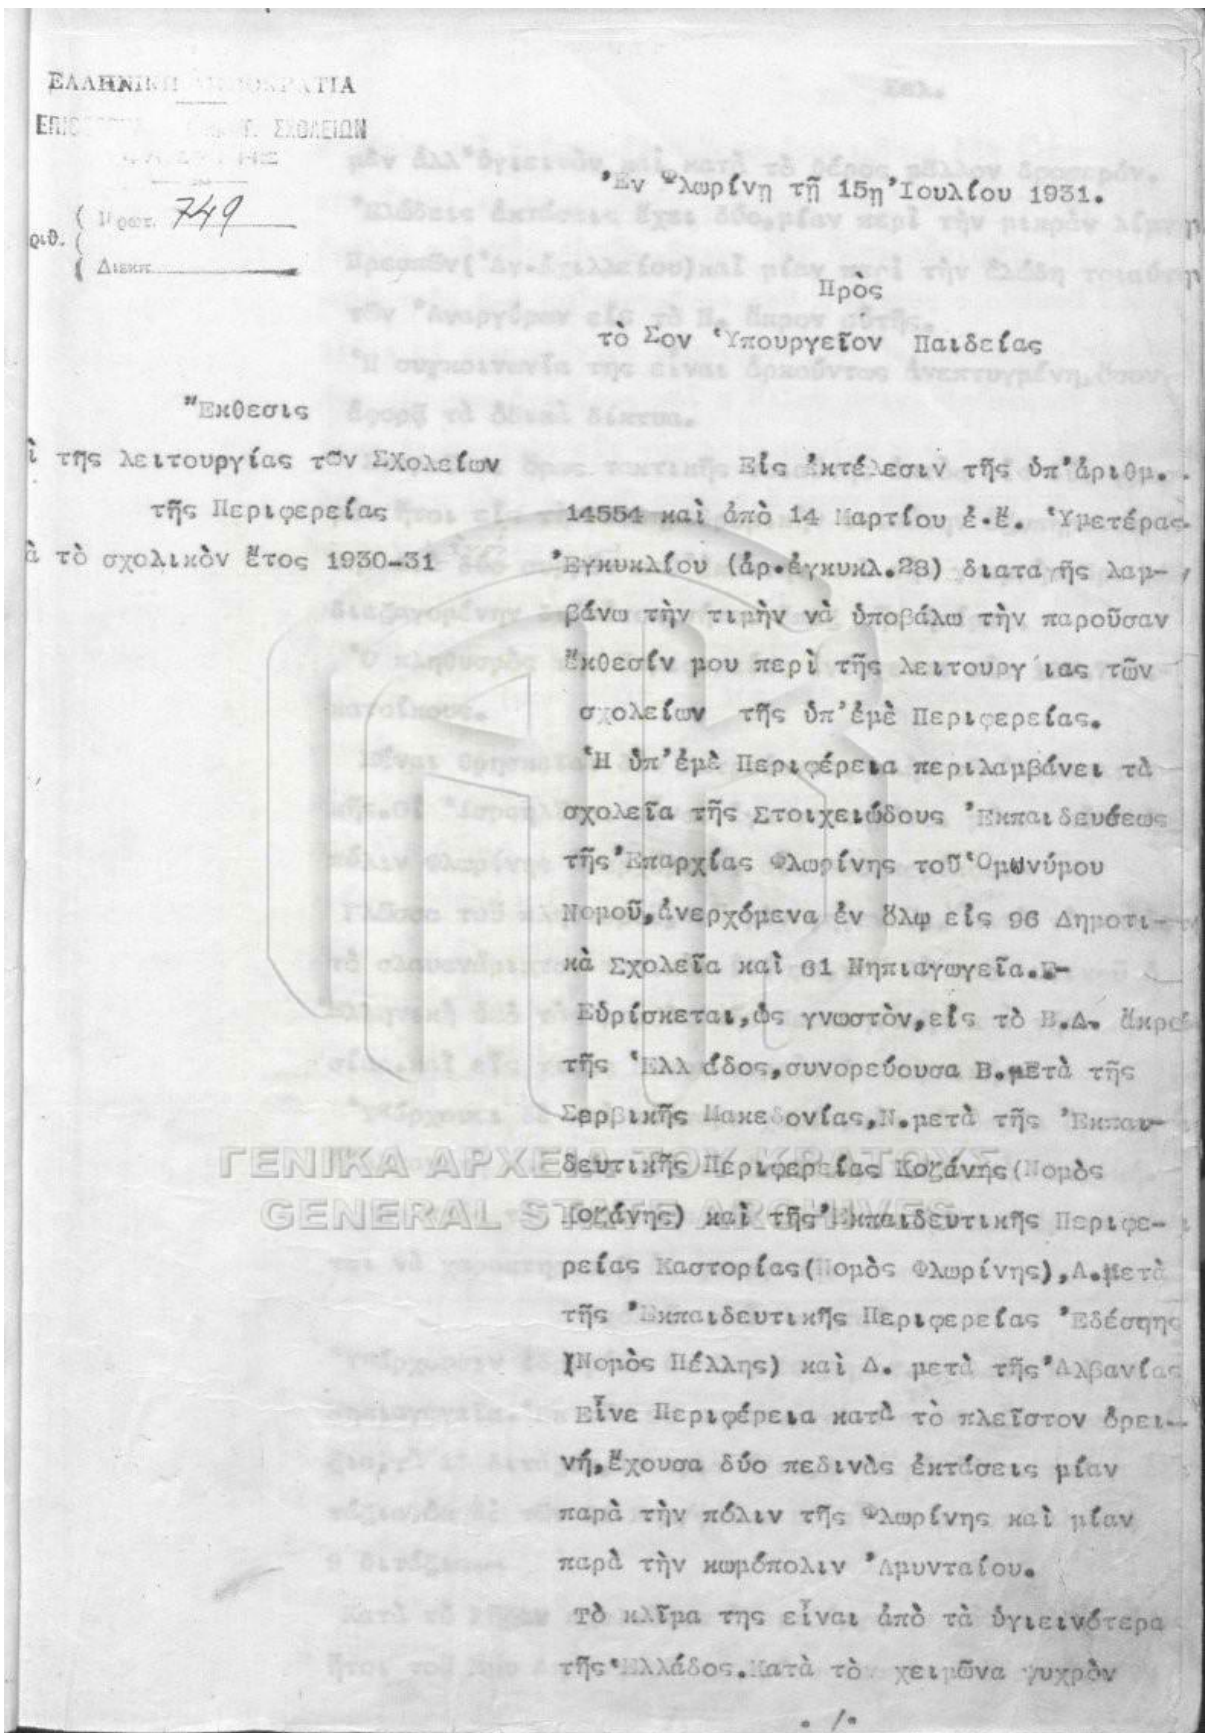 ΕΛΛΗΝΙΚΗ ΔΗΜΟΚΡΑΤΙΑ
ΣΧΟΛΕΙΩΝ
Ἐν Φλωρίνῃ τῇ 15ῃ Ἰουλίου 1931.
ριθ.
Πρωτ. 749
Διεκπ.
Πρὸς
τὸ Σον Ὑπουργεῖον Παιδείας
Ἔκθεσις
ὶ τῆς λειτουργίας τῶν Σχολείων
τῆς Περιφερείας
ὰ τὸ σχολικὸν ἔτος 1930-31
Εἰς ἐκτέλεσιν τῆς ὑπ'ἀριθμ.
14554 καὶ ἀπὸ 14 Μαρτίου ἐ.ἔ. Ὑμετέρας
Ἐγκυκλίου (ἀρ.ἐγκυκλ.28) διαταγῆς λαμ-
βάνω τὴν τιμὴν νὰ ὑποβάλω τὴν παροῦσαν
ἔκθεσίν μου περὶ τῆς λειτουργίας τῶν
σχολείων τῆς ὑπ'ἐμὲ Περιφερείας.
Ἡ ὑπ'ἐμὲ Περιφέρεια περιλαμβάνει τὰ
σχολεῖα τῆς Στοιχειώδους Ἐκπαιδεύσεως
τῆς Ἐπαρχίας Φλωρίνης τοῦ Ὁμωνύμου
Νομοῦ,ἀνερχόμενα ἐν ὅλῳ εἰς 96 Δημοτι-
κὰ Σχολεῖα καὶ 61 Νηπιαγωγεῖα.Ε-
Εὑρίσκεται,ὡς γνωστὸν,εἰς τὸ Β.Δ. ἄκρον
τῆς Ἑλλάδος,συνορεύουσα Β.μετὰ τῆς
Σερβικῆς Μακεδονίας,Ν.μετὰ τῆς Ἐκπαι-
δευτικῆς Περιφερείας Κοζάνης(Νομὸς
Κοζάνης) καὶ τῆς Ἐκπαιδευτικῆς Περιφε-
ρείας Καστορίας(Νομὸς Φλωρίνης),Α.μετὰ
τῆς Ἐκπαιδευτικῆς Περιφερείας Ἐδέσσης
(Νομὸς Πέλλης) καὶ Δ. μετὰ τῆς Ἀλβανίας
Εἶνε Περιφέρεια κατὰ τὸ πλεῖστον ὀρει-
νή,ἔχουσα δύο πεδινὰς ἐκτάσεις μίαν
παρὰ τὴν πόλιν τῆς Φλωρίνης καὶ μίαν
παρὰ τὴν κωμόπολιν Ἀμυνταίου.
Τὸ κλῖμα της εἶναι ἀπὸ τὰ ὑγιεινότερα
τῆς Ἑλλάδος.Κατὰ τὸν χειμῶνα ψυχρὸν
./.
ΓΕΝΙΚΑ ΑΡΧΕΙΑ ΤΟΥ ΚΡΑΤΟΥΣ
GENERAL STATE ARCHIVES